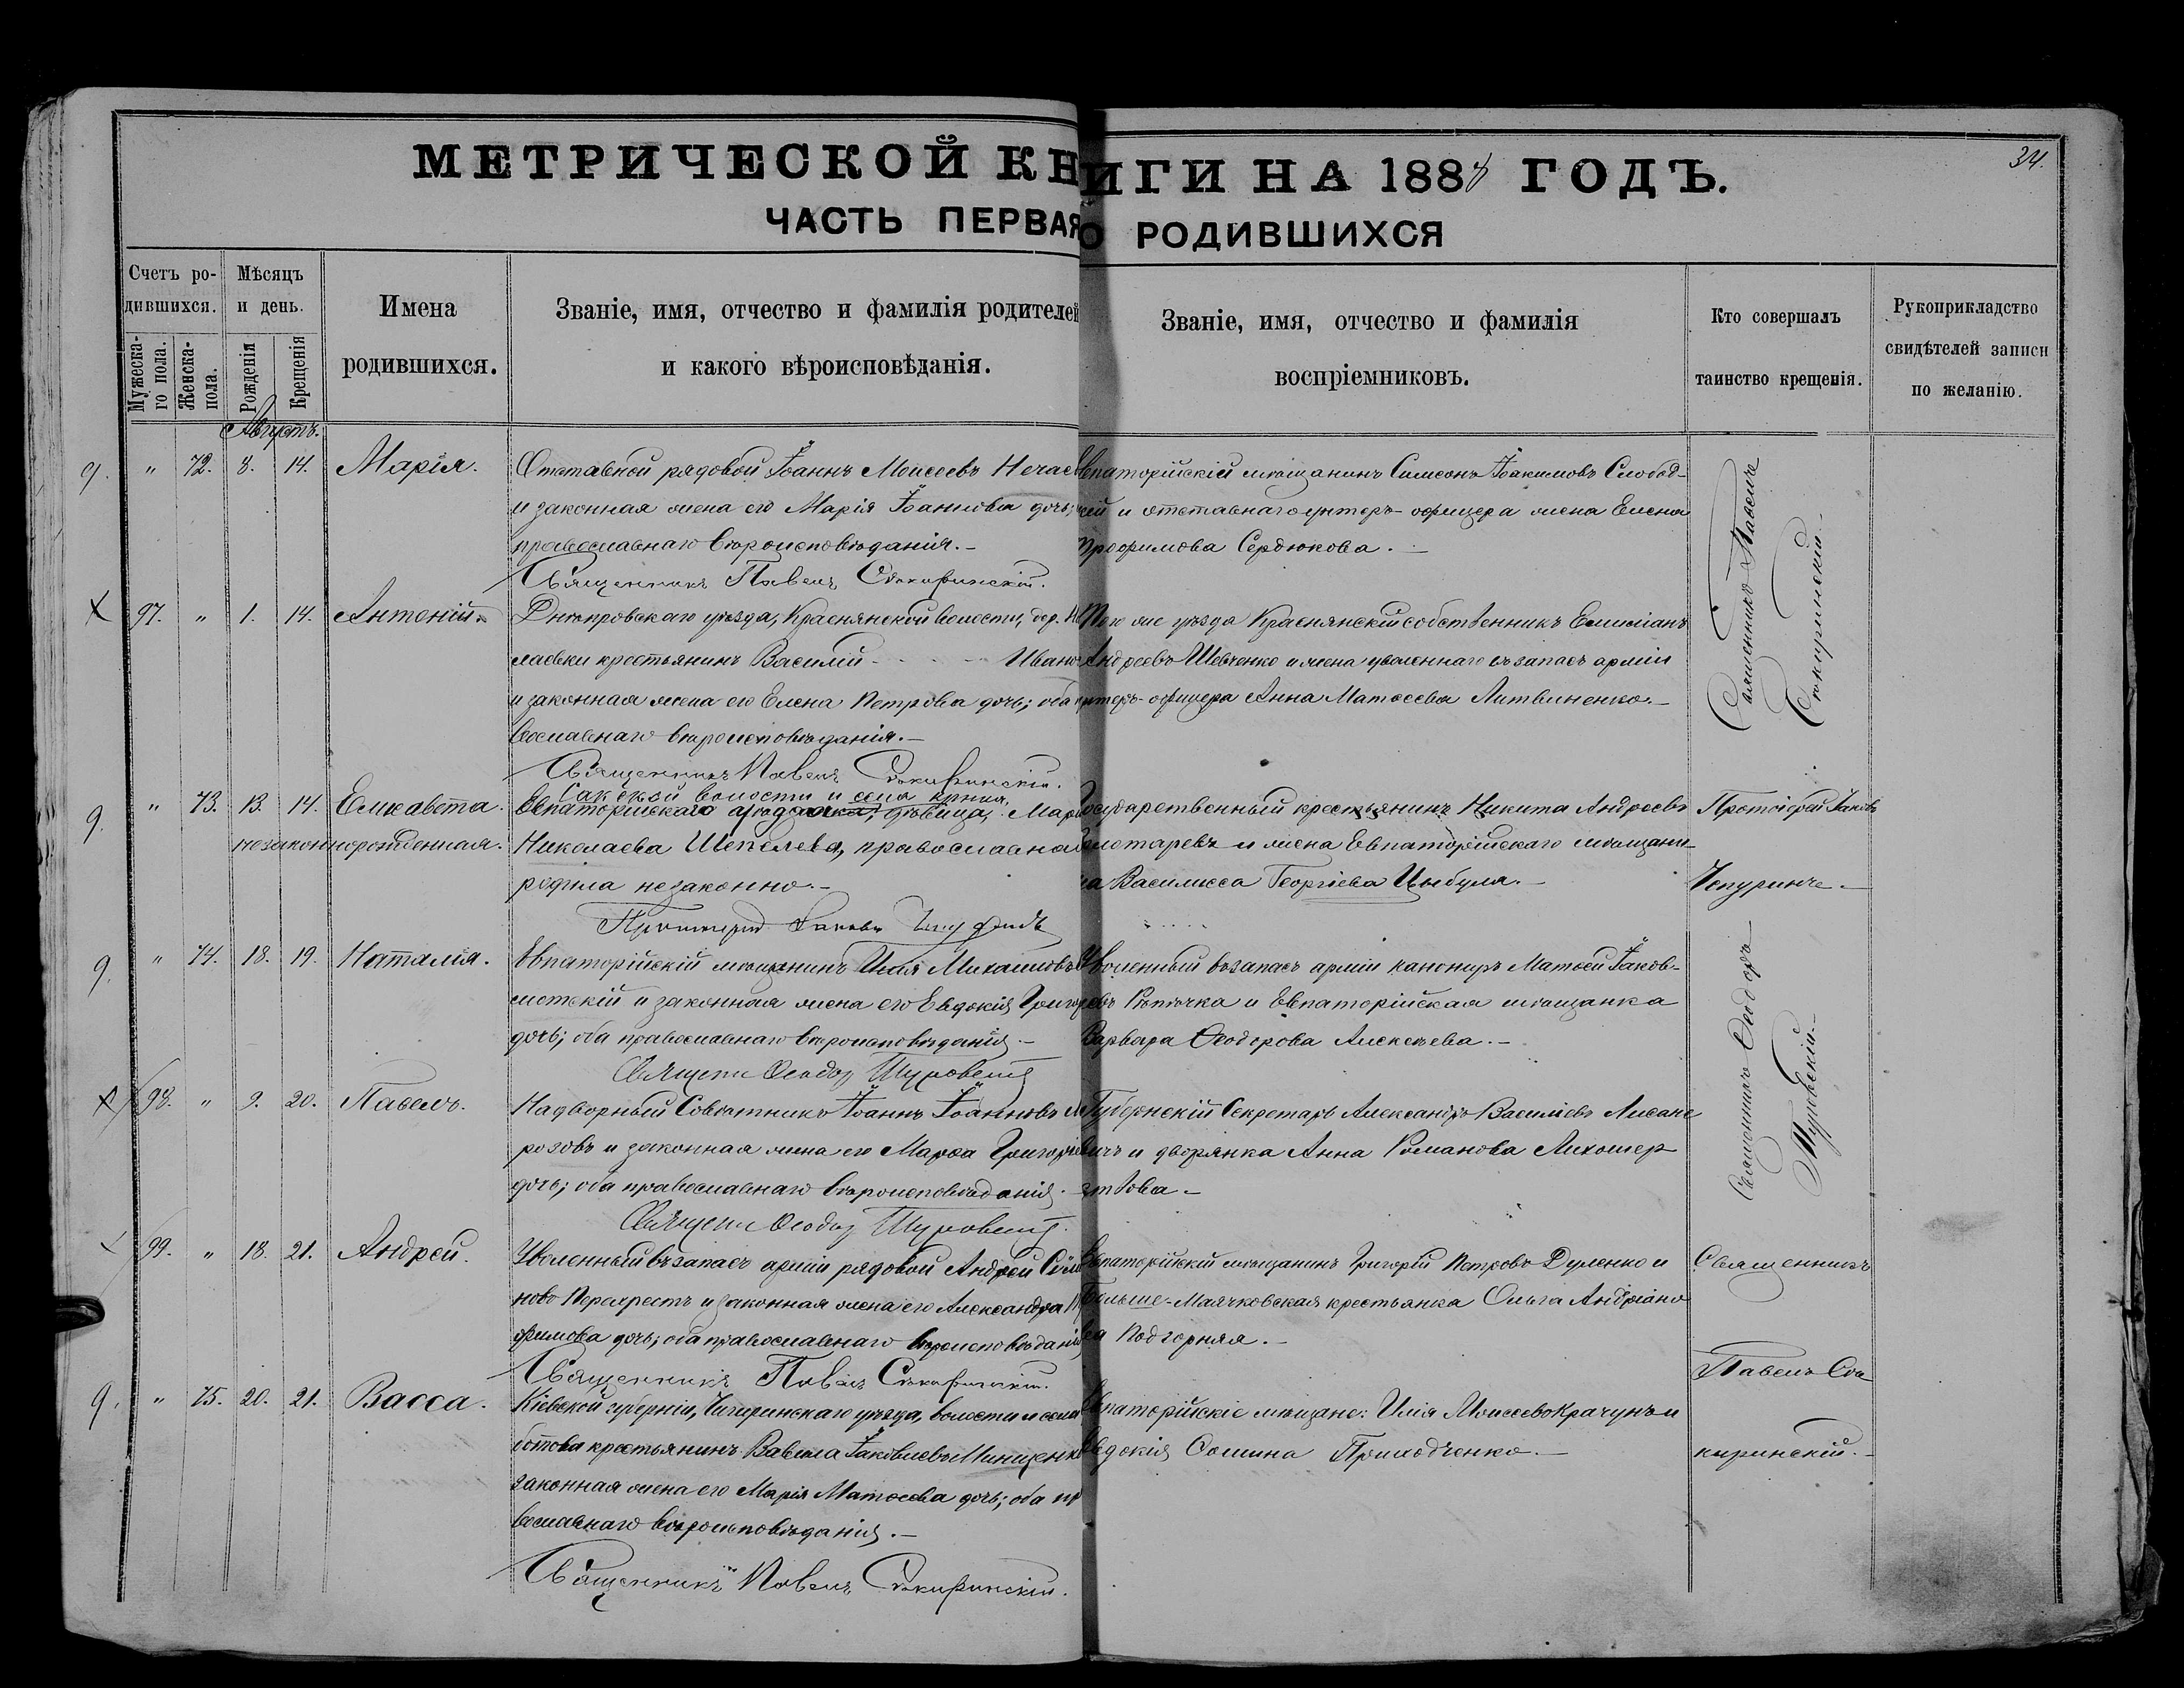 МЕТРИЧЕСКОЙ КНИГИ НА 1888 ГОДЪ.
34.
ЧАСТЬ ПЕРВАЯ О РОДИВШИХСЯ
Счетъ ро-
дившихся.
Мужеска-
го пола.
Женска-
пола.
Мѣсяцъ
и день.
Рожденія
Крещенія
Имена
родившихся.
Званіе, имя, отчество и фамилія родителей
и какого вѣроисповѣданія.
Званіе, имя, отчество и фамилія
воспріемниковъ.
Кто совершалъ
таинство крещенія.
Рукоприкладство
свидѣтелей записи
по желанію.
Августъ.
9. " 72. 8. 14. Марія.
Отставной рядовой Іоаннъ Моисеевъ Нечаев
и законная жена его Марія Іоаннова дочь;
православнаго вѣроисповѣданія.-
Священникъ Павелъ Сѣкиринскій.
Евпаторійскій мѣщанинъ Симеонъ Іоакимовъ Слобод-
чій и отставнаго унтеръ-офицера жена Елена
Трофимова Сердюкова.-
Священникъ Павелъ
Сѣкиринскій.-
X 97. " 1. 14. Антоній.
Днѣпровскаго уѣзда, Краснянской волости, дер. Ни
лаевки крестьянинъ Василій - - - - Ивано
и законная жена его Елена Петрова дочь; оба п
вославнаго вѣроисповѣданія.-
Священникъ Павелъ Сѣкиринскій.
Того же уѣзда Краснянскій собственникъ Емиліанъ
Андреевъ Шевченко и жена уволеннаго въ запасъ арміи
унтеръ-офицера Анна Матѳеева Литвиненко.-
9. " 73. 13. 14. Елисавета.
незаконнорожденная.
Сакской волости и села крина,
Евпаторійскаго уѣзда дѣвица, Мар
Николаева Шепелева, православная
родила незаконно.-
Протоіерей Іаковъ
Государственный крестьянинъ Никита Андреевъ
Золотаревъ и жена Евпаторійскаго мѣщани-
на Василисса Георгіева Цыбуля.-
Протоіерей Іаковъ
Чепуринъ.-
9. " 74. 18. 19. Наталія.
Евпаторійскій мѣщанинъ Илія Михаиловъ
мотскій и законная жена его Евдокія Григор
дочь; оба православнаго вѣроисповѣданія.-
Священ Ѳеодор Туровскій
Уволенный въ запасъ арміи канониръ Матѳей Іаков-
левъ Рѣпочка и Евпаторійская мѣщанка
Варвара Ѳеодорова Алексѣева.-
Священникъ Ѳеодоръ
Туровскій.-
X 98. " 9. 20. Павелъ.
Надворный Совѣтникъ Іоаннъ Іоанновъ М
розовъ и законная жена его Марѳа Григорье
дочь; оба православнаго вѣроисповѣданія.
Священ Ѳеодор Туровскій.
Губернскій Секретарь Александръ Василіевъ Лисане
вичъ и дворянка Анна Романова Лихошер
стова.-
99. " 18. 21. Андрей.
Уволенный въ запасъ арміи рядовой Андрей Симе
новъ Перехрестъ и законная жена его Александра Тр
фимова дочь; оба православнаго вѣроисповѣданія
Священникъ Павелъ Сѣкиринскій.
Евпаторійскій мѣщанинъ Григорій Петровъ Дуленко и
Больше-Маячковская крестьянка Ольга Андріано
ва Подгорняя.-
Священникъ
Павелъ Сѣ-
киринскій.-
9. " 75. 20. 21. Васса.
Кіевской губерніи, Чигиринскаго уѣзда, волости и села
ботова крестьянинъ Вавила Іаковлевъ Мищенко
законная жена его Марія Матѳеева дочь; оба пр
вославнаго вѣроисповѣданія.-
Священникъ Павелъ Сѣкиринскій.
Евпаторійскіе мѣщане: Илія Моисеевъ Крачунъ и
Евдокія Ѳомина Приходченко.-